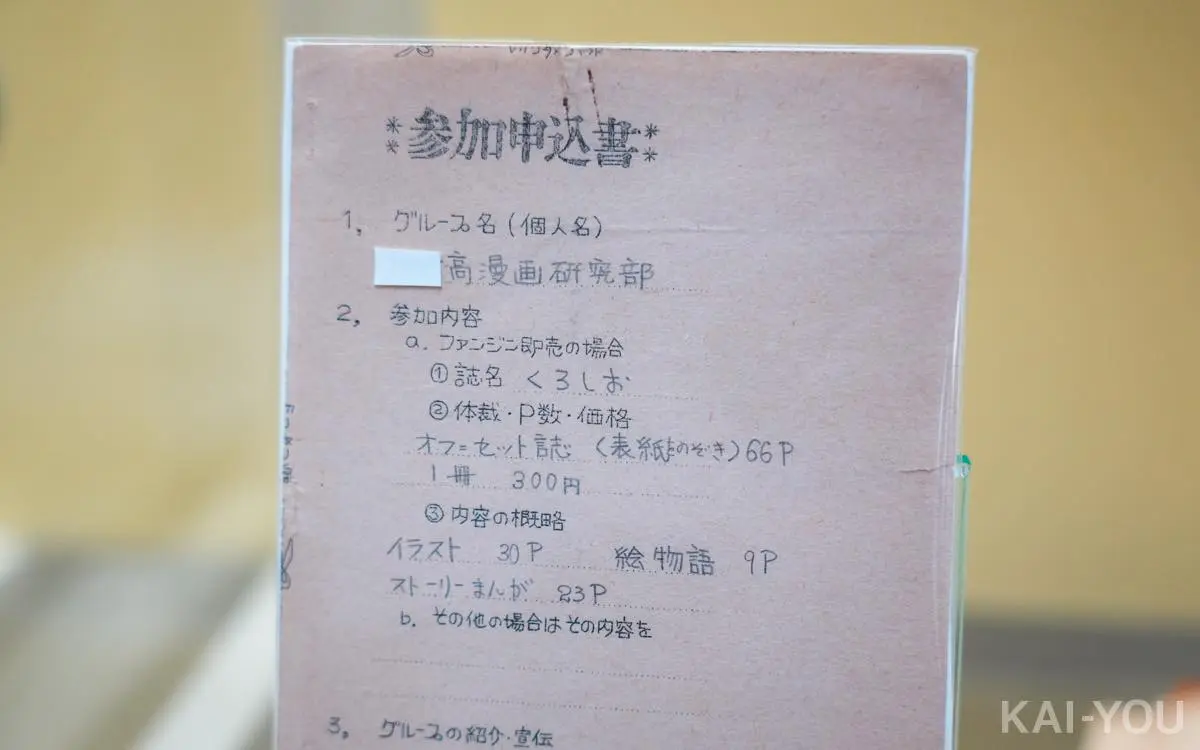 **参加申込書**
1, グループ名(個人名)
高漫画研究部
2, 参加内容
a. ファンジン即売の場合
①誌名 くろしお
②体裁・P数・価格
オフセット誌 (表紙はのぞき)66P
1冊 300円
③内容の概略
イラスト 30P 絵物語 9P
ストーリーまんが 23P
b. その他の場合はその内容を
3, グループの紹介・宣伝
KAI-YOU